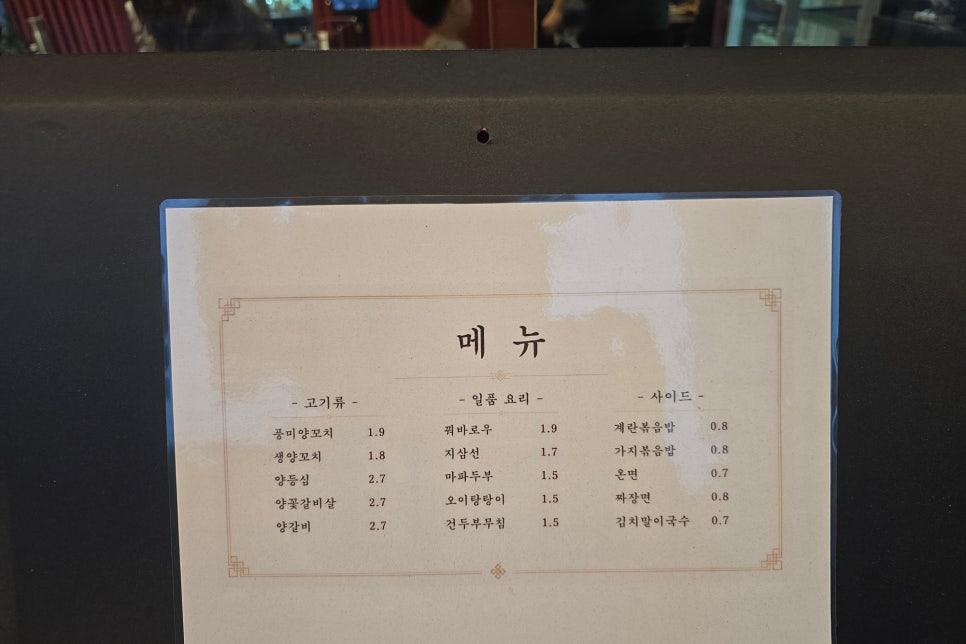 메 뉴
- 고기류 -
풍미양꼬치 1.9
생양꼬치 1.8
양등심 2.7
양꽃갈비살 2.7
양갈비 2.7
- 일품 요리 -
꿔바로우 1.9
지삼선 1.7
마파두부 1.5
오이탕탕이 1.5
건두부무침 1.5
- 사이드 -
계란볶음밥 0.8
가지볶음밥 0.8
온면 0.7
짜장면 0.8
김치말이국수 0.7